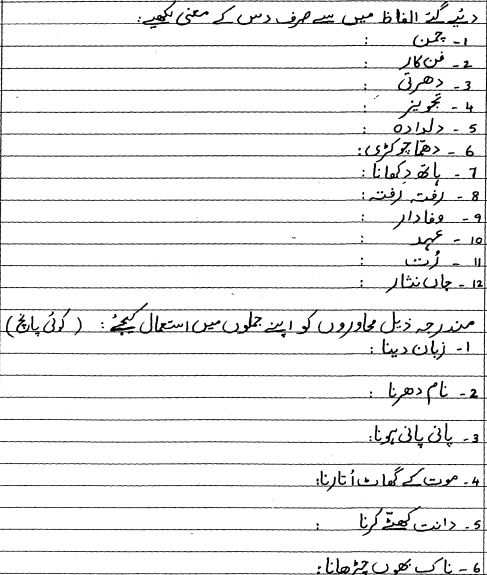 دئیے گئے الفاظ میں سے صرف دس کے معنی لکھیے:
۱- چمن :
2- فن کار :
3- دھرتی :
4- تجویز :
5- دلدادہ :
6- دھما چوکڑی:
7- ہاتھ دِکھانا:
8- رفتہ رفتہ:
9- وفادار :
10- عہد :
11- رُت :
12- جاں نثار :
مندرجہ ذیل محاوروں کو اپنے جملوں میں استعمال کیجئے: (کوئی پانچ)
۱- زبان دینا :
2- نام دھرنا :
3- پانی پانی ہونا:
4- موت کے گھاٹ اُتارنا:
5- دانت کھٹّے کرنا :
6- ناک بھوں چڑھانا: